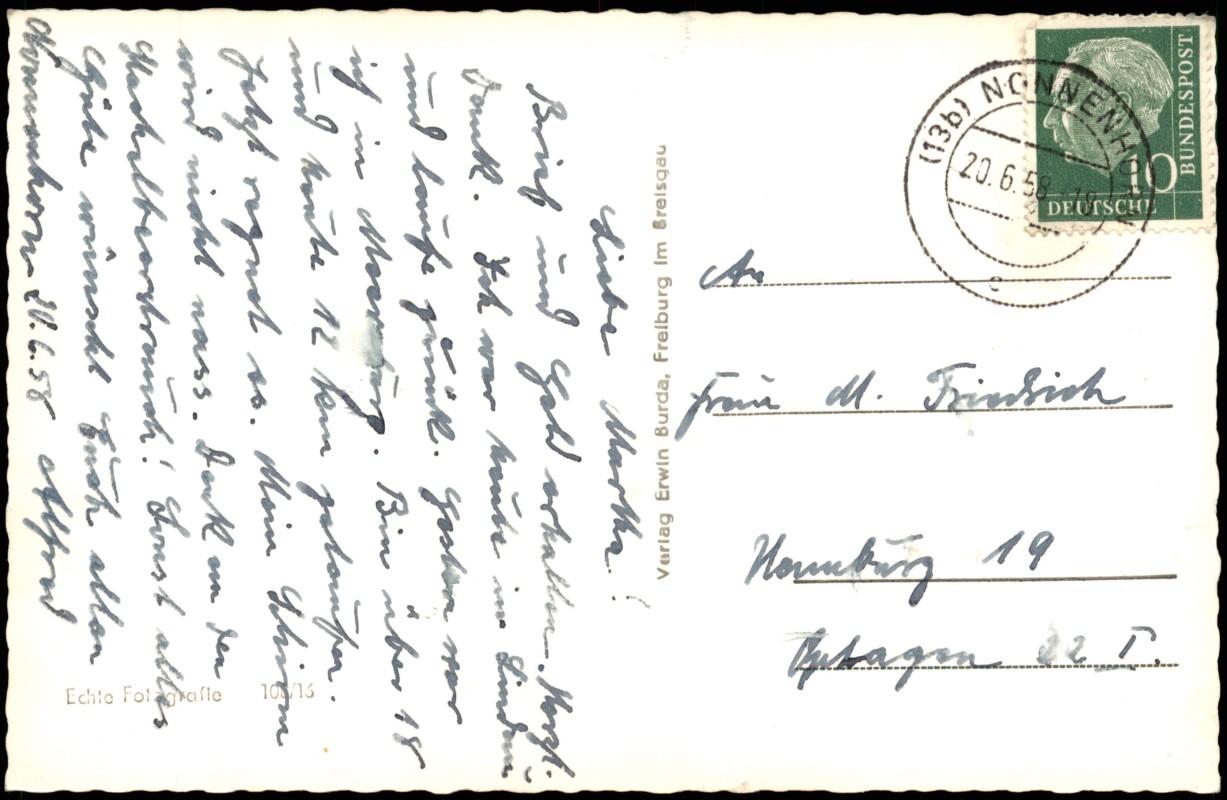 Liebe Martha!
Brief und Geld erhalten. Herzl.
Dank. Ich war heute in Lindau
und laufe zurück. Gestern war
ich in Meersburg. Bin über 18
und heute 12 km gelaufen.
Jetzt regnet es. Mein Schirm
wird nicht nass. Denk an den
Stachelbeerstrauch! Sonst alles
Gute wünscht Euch allen
Nonnenhorn 20.6.58 Alfred
Echte Fotografie 108/16
Verlag Erwin Burda, Freiburg im Breisgau
(13b) NONNENHORN
20.6.58
e
10
DEUTSCHE
BUNDESPOST
An
Frau M. Friedrich
Hamburg 19
22 I.